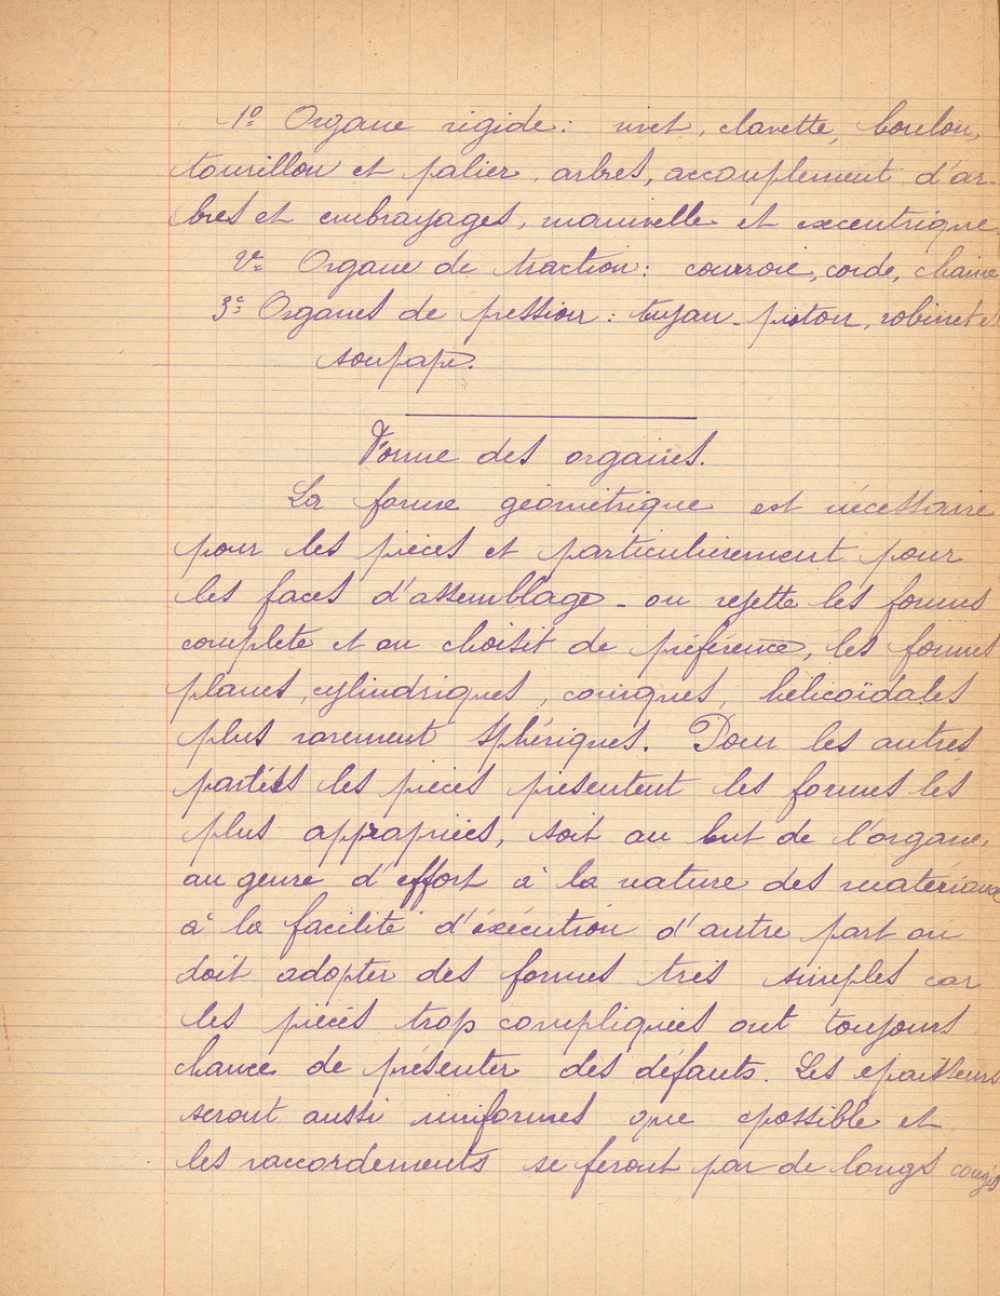 1º Organe rigide : rivet, clavette, boulon,
tourillon et palier, arbres, accouplement d'ar-
bres et embrayages, manivelle et excentrique.
2º Organe de traction : courroie, corde, chaine
3º Organes de pression : tuyau - piston, robinet et
soupape.
Forme des organes.
La forme géométrique est nécessaire
pour les pièces et particulièrement pour
les faces d'assemblage - on rejette les formes
complète et on choisit de préférence, les formes
planes, cylindriques, coniques, hélicoïdales
plus rarement sphériques. Pour les autres
parties les pièces présentent les formes les
plus appropriées, soit au but de l'organe,
au genre d'effort à la nature des matériaux
à la facilité d'éxécution d'autre part on
doit adopter des formes très simples car
les pièces trop compliquées ont toujours
chance de présenter des défauts. Les épaisseurs
seront aussi uniformes que possible et
les raccordements se feront par de longs congés